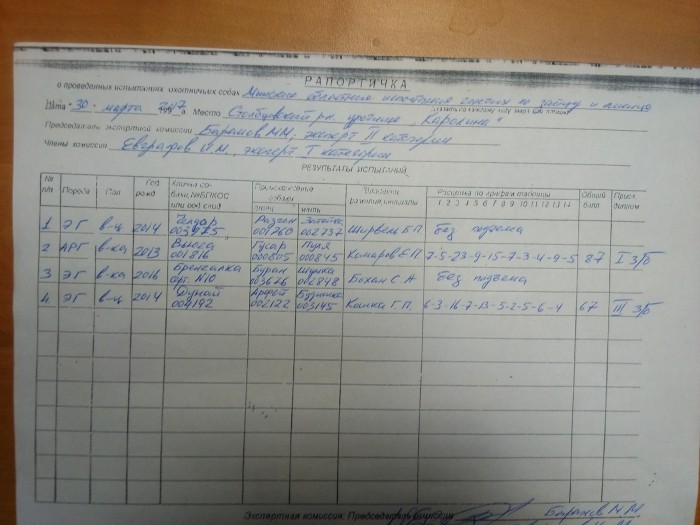 РАПОРТИЧКА
о проведенных испытаниях охотничьих собак Минские областные испытания гончих по зайцу и лисице
Дата "30" марта 2017 г. Место Столбцовский р-н. урочище "Каролина"
Председатель экспертной комиссии Баранов М.М., эксперт II категории
Члены комиссии Евграфов И.М., эксперт I категории
РЕЗУЛЬТАТЫ ИСПЫТАНИЙ
№ п/п Порода Пол Год рожд Кличка собаки, №ВПКОС или род свид Происхождение собаки отец мать Владелец фамилия, инициалы Расценка по графам таблицы 1 2 3 4 5 6 7 8 9 10 11 12 13 14 Общий балл Прис. диплом
1 ЭГ в-ц 2014 003975 Разгон 001760 002737 Ширвель Б.П. без подъема
2 АРГ в-ка 2013 Висса 001816 Гусар 000805 Пуля 000845 Комаров Е.П. 7-5-23-9-15-7-3-4-9-5 87 I З/Б
3 ЭГ в-ка 2016 Бренчалка №10 Буран 003676 Шумка 002848 Бохан С.А. без подъема
4 ЭГ в-ц 2014 Дунай 004192 002122 003145 Кошка Г.П. 6-3-16-7-13-5-2-5-6-4 67 III З/Б
Экспертная комиссия: Председатель комиссии Баранов М.М.